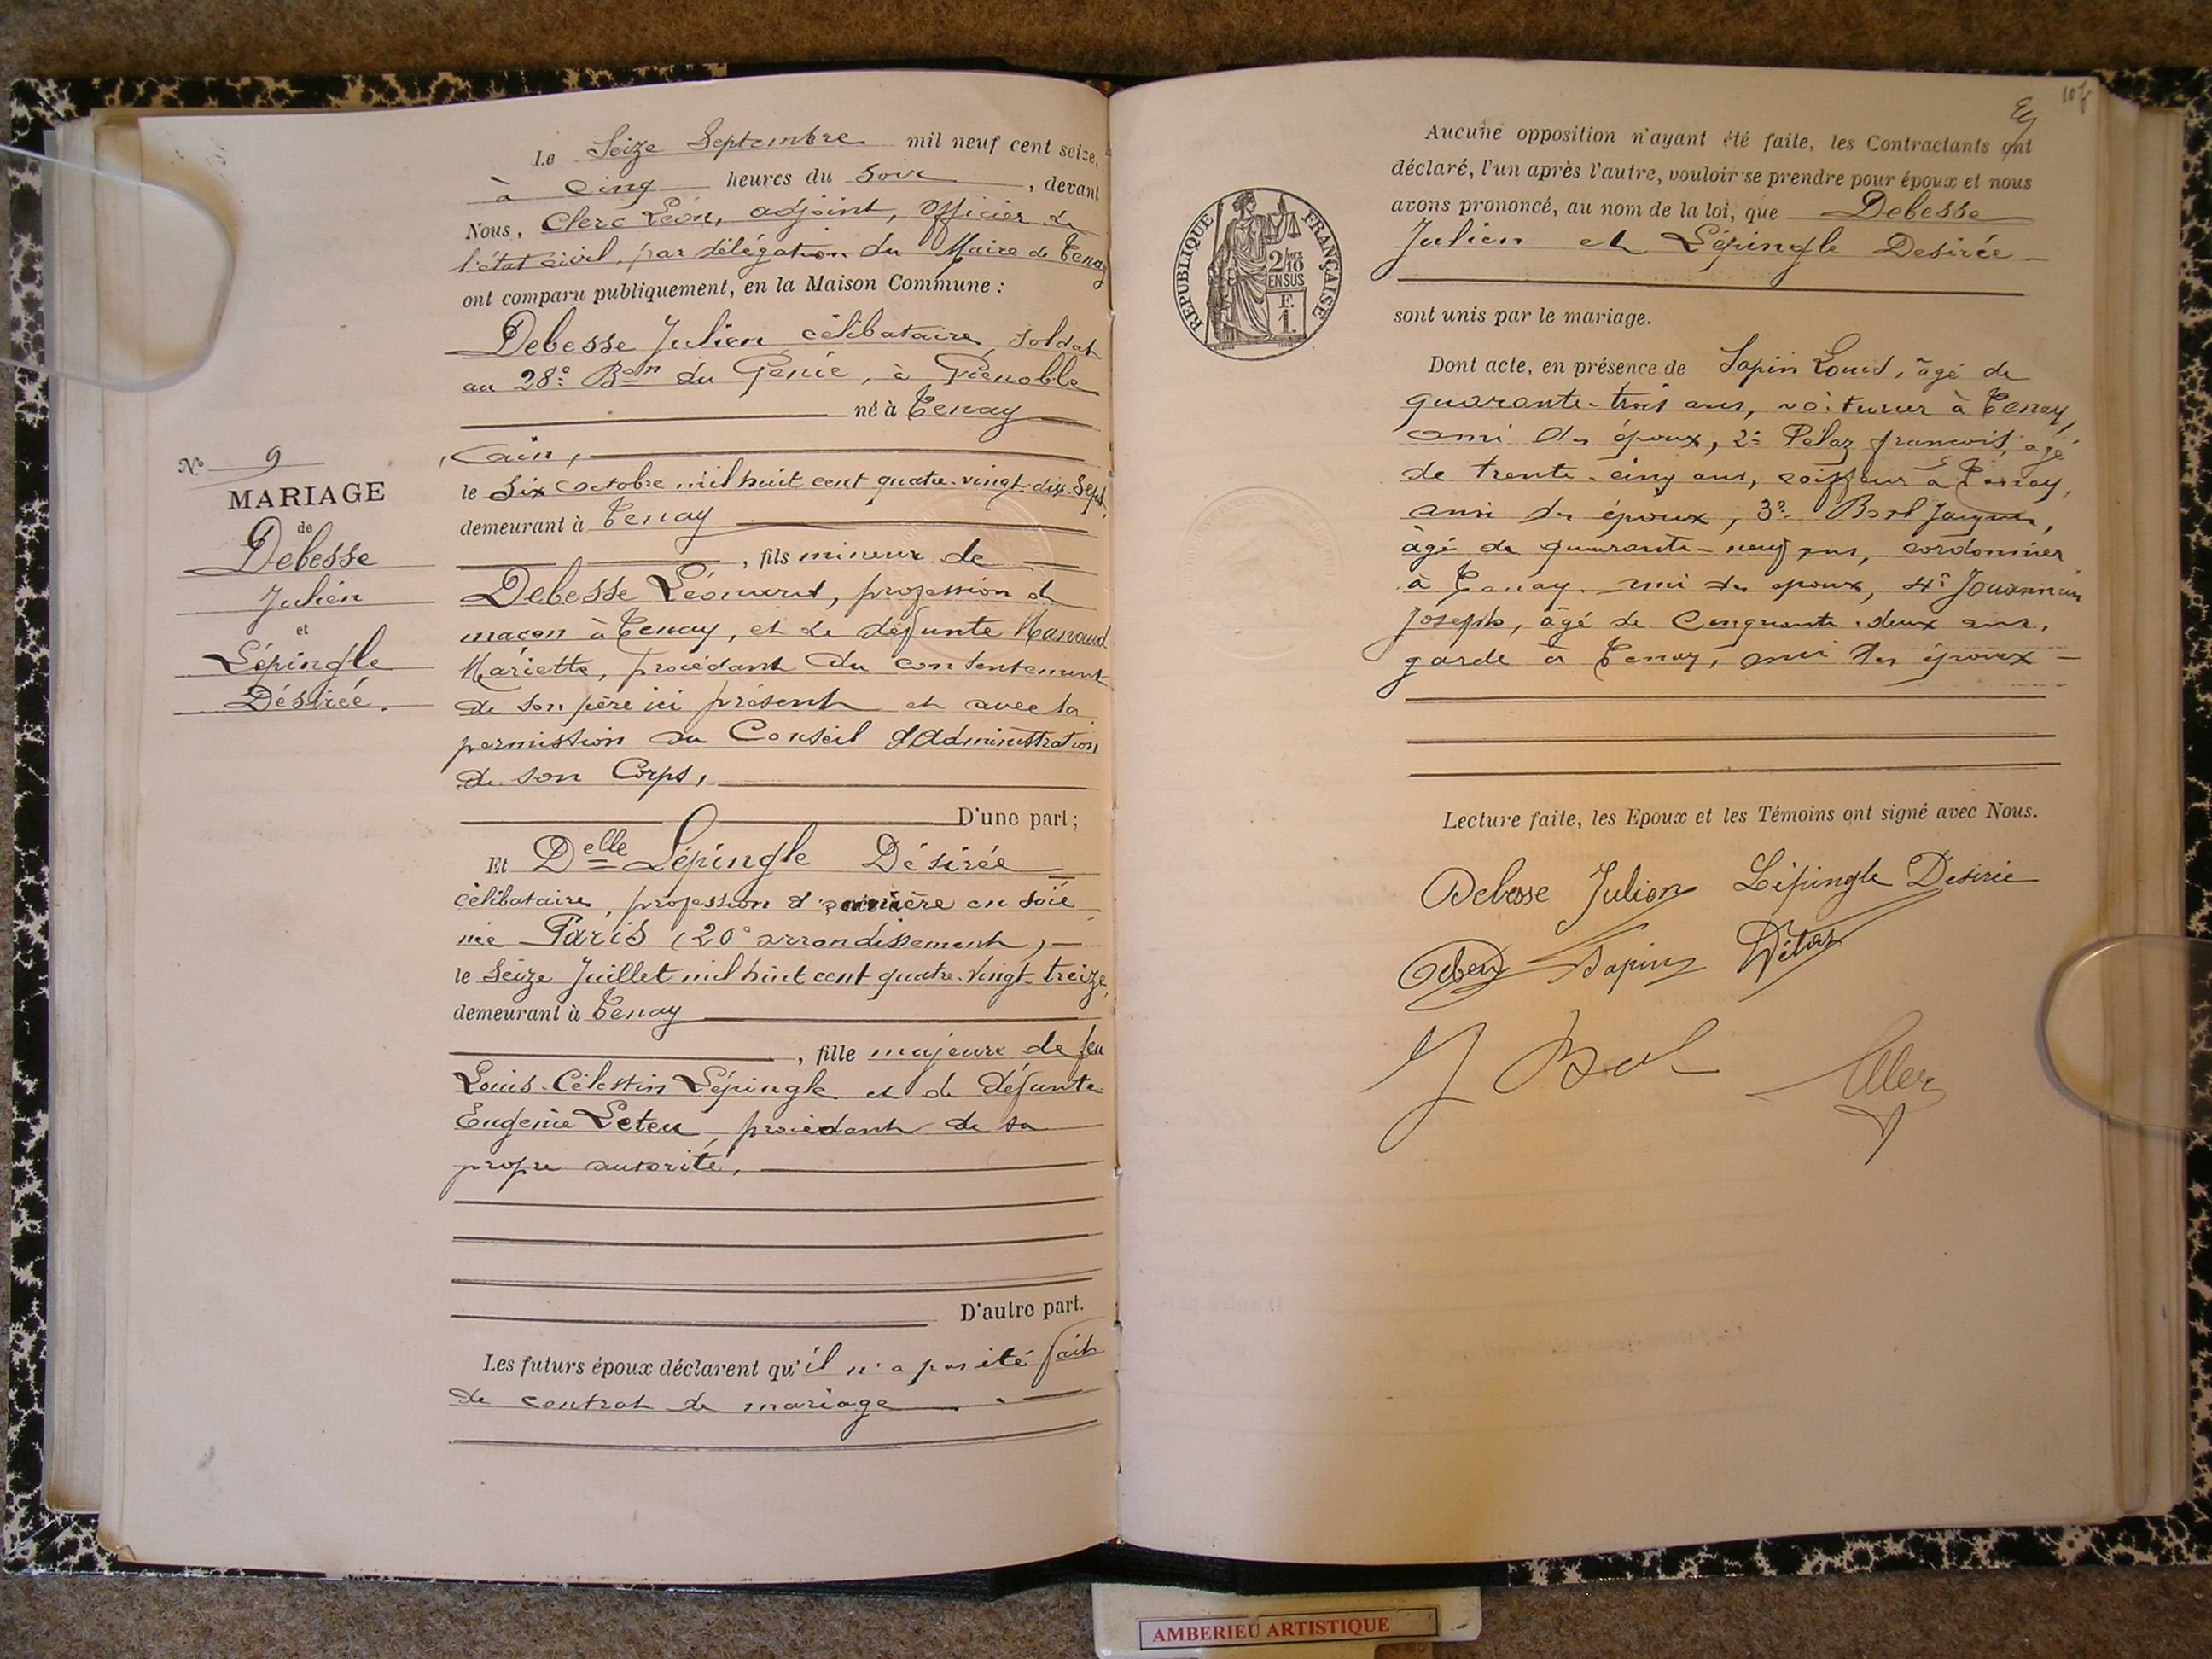 Le Seize Septembre mil neuf cent seize,
à Cinq heures du Soir, devant
Nous, Clerc Léon, adjoint, Officier de
l'état civil, par délégation du Maire de Tenay
ont comparu publiquement, en la Maison Commune :
Debesse Julien célibataire, soldat
au 28e Bon du Génie, à Grenoble
né à Tenay
, Ain,
le Six Octobre mil huit cent quatre-vingt-dix-sept,
demeurant à Tenay
, fils mineur de
Debesse Léonard, profession de
maçon à Tenay, et de défunte
Mariette, procédant du consentement
de son père ici présent et avec la
permission du Conseil d'Administration
de son Corps,
D'une part ;
Et Delle Lépingle Désirée
célibataire, profession d'ouvrière en soie
née Paris (20e arrondissement),
le Seize Juillet mil huit cent quatre-vingt-treize,
demeurant à Tenay
, fille majeure de feu
Louis-Célestin Lépingle et de défunte
Eugénie Leteu, procédant de sa
propre autorité,
D'autre part.
Les futurs époux déclarent qu'il n'a pas été fait
de contrat de mariage
No 9
MARIAGE
de
Debesse
Julien
et
Lépingle
Désirée.
Aucune opposition n'ayant été faite, les Contractants ont
déclaré, l'un après l'autre, vouloir se prendre pour époux et nous
avons prononcé, au nom de la loi, que Debesse
Julien et Lépingle Desirée
sont unis par le mariage.
Dont acte, en présence de Sapin Louis, âgé de
quarante-trois ans, voiturier à Tenay,
ami des époux, 2e Pélaz françois, agé
de trente-cinq ans, coiffeur à Tenay,
ami des époux, 3e Borl Jacques,
âgé de quarante-neuf ans, cordonnier
à Tenay, ami des époux, 4e Jouannin
Joseph, âgé de Cinquante-deux ans,
garde à Tenay, ami des époux
Lecture faite, les Epoux et les Témoins ont signé avec Nous.
Debesse Julien Lépingle Désirée
Sapin Pélaz
REPUBLIQUE FRANÇAISE
2/10
EN SUS
F.
1.
AMBERIEU ARTISTIQUE